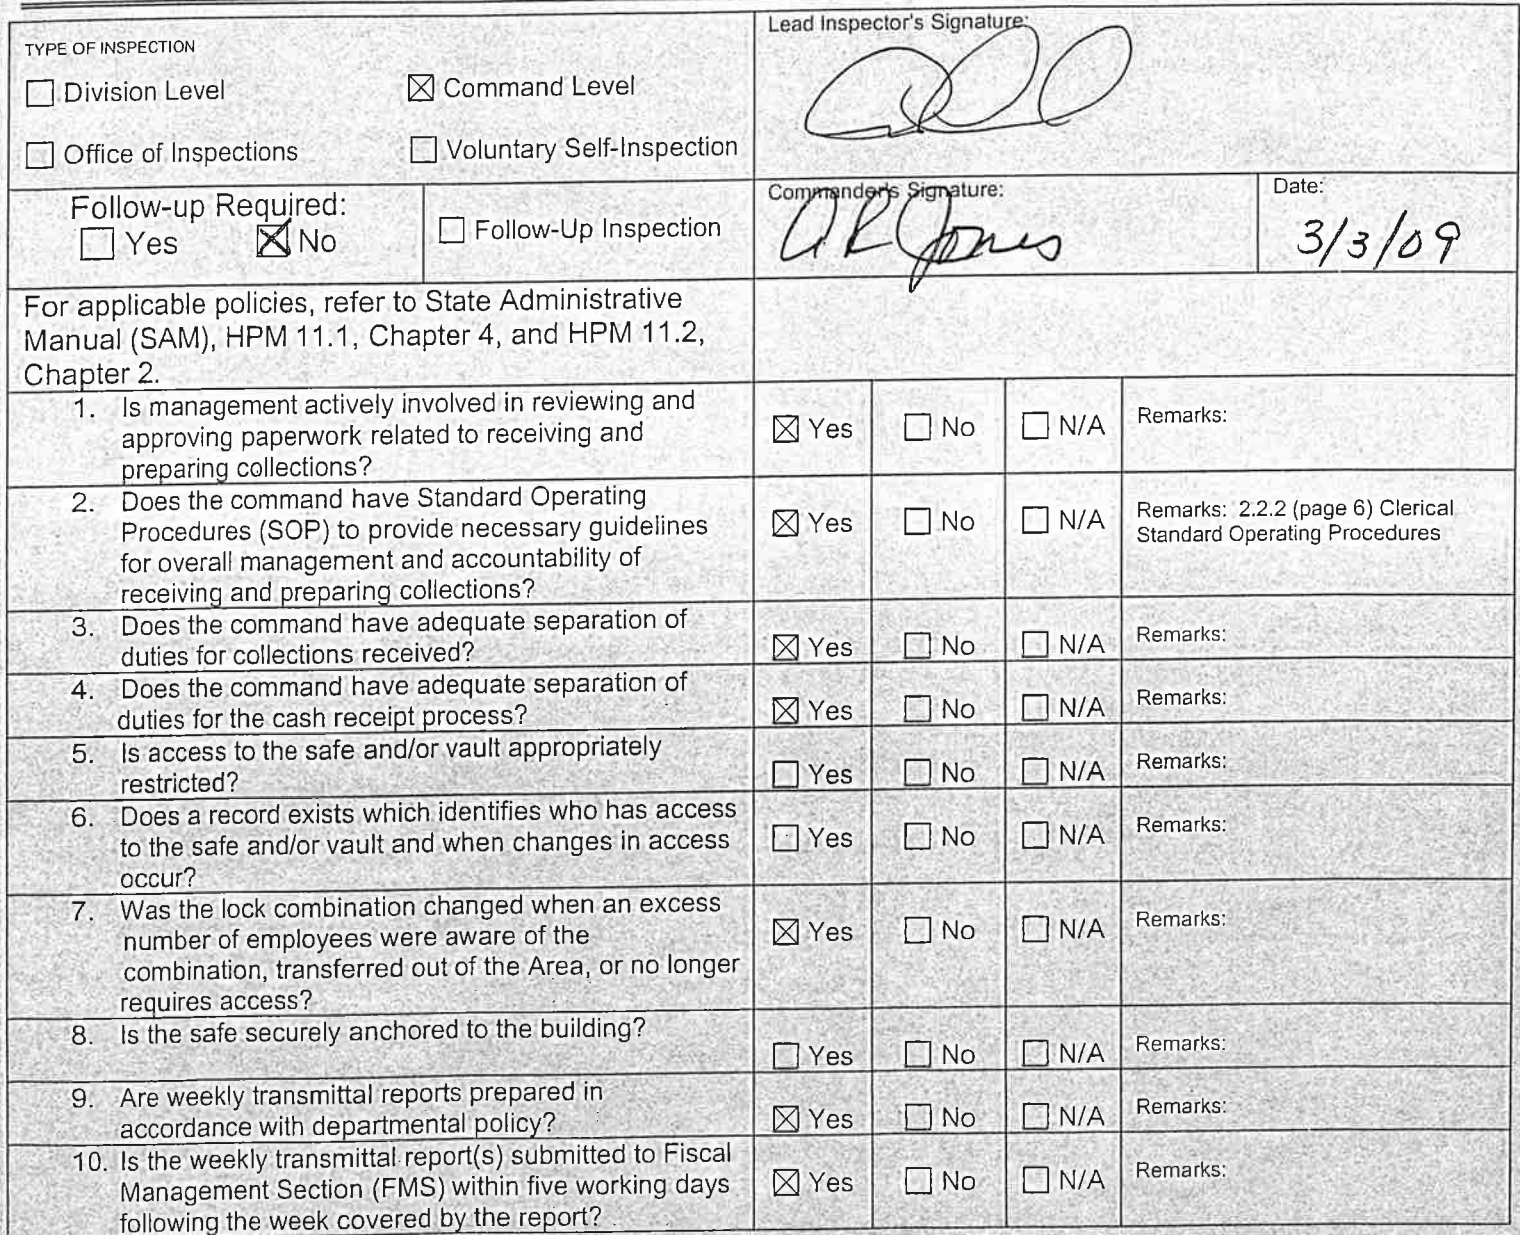 TYPE OF INSPECTION
☐ Division Level ☒ Command Level
☐ Office of Inspections ☐ Voluntary Self-Inspection
Lead Inspector's Signature:
Follow-up Required:
☐ Yes ☒ No
☐ Follow-Up Inspection
Commander's Signature:
A R Jones
Date:
3/3/09
For applicable policies, refer to State Administrative
Manual (SAM), HPM 11.1, Chapter 4, and HPM 11.2,
Chapter 2.
1. Is management actively involved in reviewing and
approving paperwork related to receiving and
preparing collections?
☒ Yes ☐ No ☐ N/A Remarks:
2. Does the command have Standard Operating
Procedures (SOP) to provide necessary guidelines
for overall management and accountability of
receiving and preparing collections?
☒ Yes ☐ No ☐ N/A Remarks: 2.2.2 (page 6) Clerical
Standard Operating Procedures
3. Does the command have adequate separation of
duties for collections received?
☒ Yes ☐ No ☐ N/A Remarks:
4. Does the command have adequate separation of
duties for the cash receipt process?
☒ Yes ☐ No ☐ N/A Remarks:
5. Is access to the safe and/or vault appropriately
restricted?
☐ Yes ☐ No ☐ N/A Remarks:
6. Does a record exists which identifies who has access
to the safe and/or vault and when changes in access
occur?
☐ Yes ☐ No ☐ N/A Remarks:
7. Was the lock combination changed when an excess
number of employees were aware of the
combination, transferred out of the Area, or no longer
requires access?
☒ Yes ☐ No ☐ N/A Remarks:
8. Is the safe securely anchored to the building?
☐ Yes ☐ No ☐ N/A Remarks:
9. Are weekly transmittal reports prepared in
accordance with departmental policy?
☒ Yes ☐ No ☐ N/A Remarks:
10. Is the weekly transmittal report(s) submitted to Fiscal
Management Section (FMS) within five working days
following the week covered by the report?
☒ Yes ☐ No ☐ N/A Remarks: